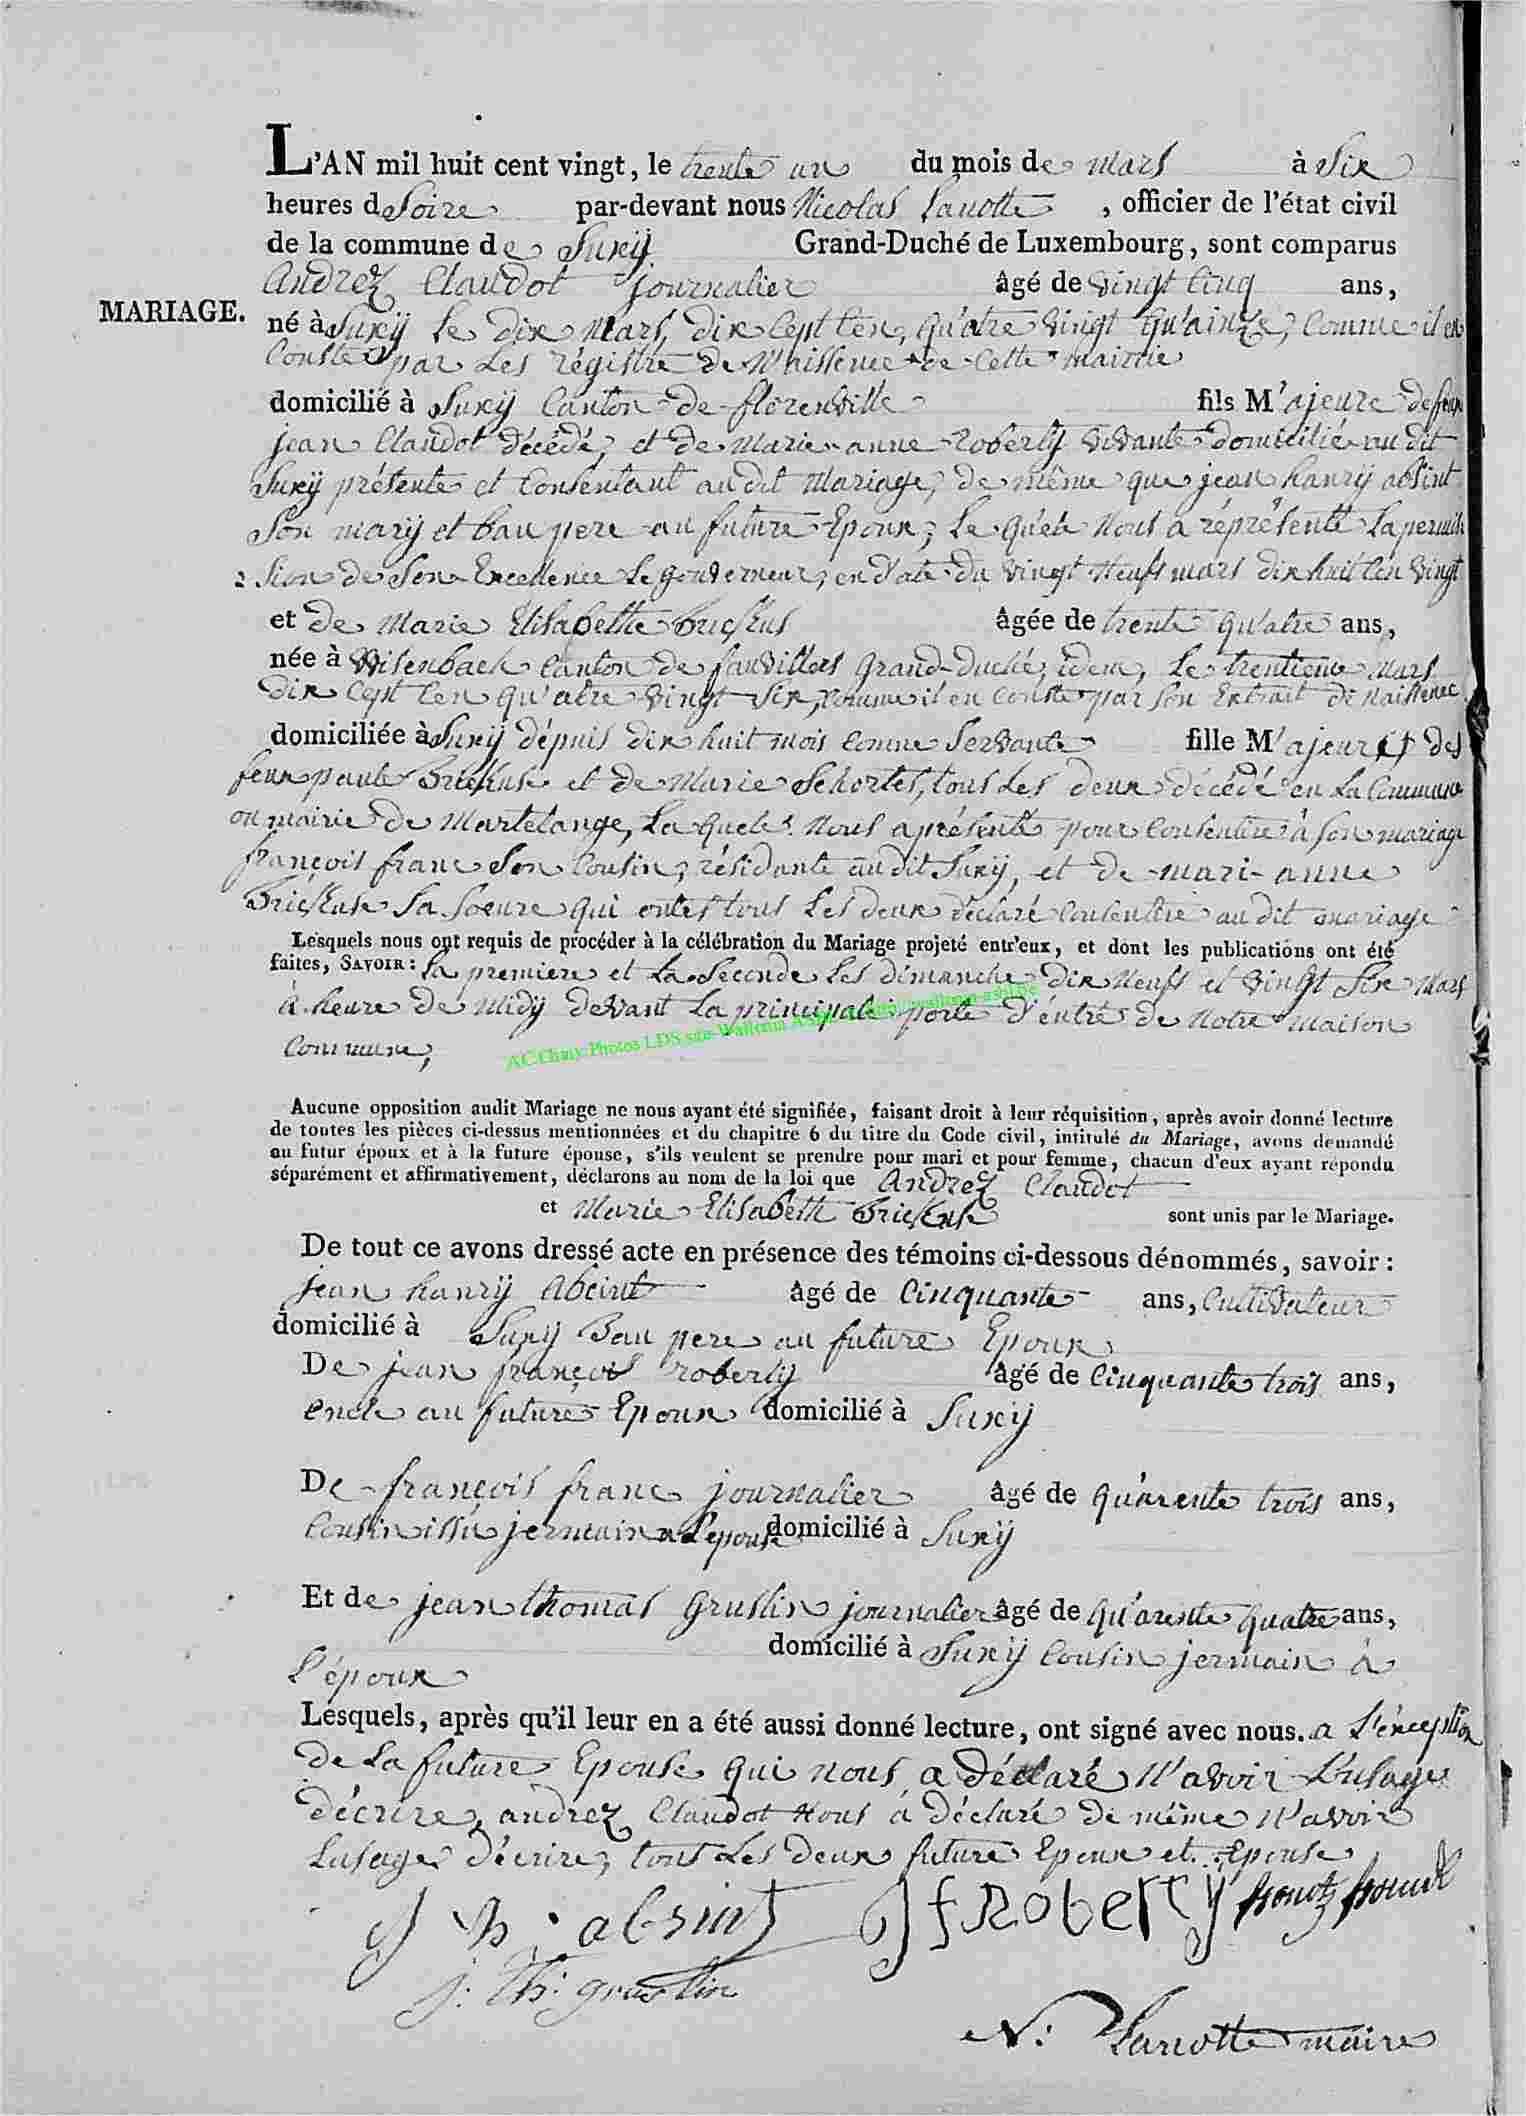 L'AN mil huit cent vingt, le trente un du mois de mars à Six
heures d Soire par-devant nous Nicolas Lanotte, officier de l'état civil
de la commune de Suxÿ Grand-Duché de Luxembourg, sont comparus
Andrez Claudot journalier âgé de vingt Cinq ans,
MARIAGE.
né à Suxÿ le dix Mars, dix Cept Cen, Qu'atre vingt Qu'ainze, Comme il en
Conste par Les régistre de N'aissence de Cette mairie
domicilié à Suxÿ Canton de florenville fils M'ajeure de feux
jean Claudot décédé, et de Marie anne Robertÿ vivante domicilié au dit
Suxÿ présente et Consentant au dit Mariage, de même que jean hanrÿ absint
Son marÿ et bau pere au future Epoux; Le Qu'el Nous a réprésenté La permis
Sion de Son Excellence Le gouverneur, en d'ate du vingt Neufs mars dix huit Cen vingt
et de Marie Elisabette brickus âgée de trente Qu'atre ans,
née à Wisenbach Canton de fauvillers Grand-duché, idem, Le trentieme Mars
dix Cept Cen Qu'atre vingt Six, comme il en Conste par Son Extrait de Naissence
domiciliée à Suxÿ dépuis dix huit mois Comme Servante fille M'ajeure des
feux paule Brickuse et de Marie Schortes, tous Les deux décédé en La Commune
ou mairie de Martelange, La Quele Nous a présenté pour Consentire à Son mariage
françois franc Son Cousin, résidante au dit Suxÿ, et de mari-anne
Brickuse Sa Soeure Qui ontes tous Les deux déclaré Consentire au dit mariage
Lesquels nous ont requis de procéder à la célébration du Mariage projeté entr'eux, et dont les publications ont été
faites, SAVOIR: La premiere et La Seconde Les dimanche dix Neufs et vingt Six Mars
à heure de Midÿ devant La principale porte d'entré de Notre Maison
Commune,
AC Chiny Photos LDS site Wallonia ASBL
Aucune opposition audit Mariage ne nous ayant été signifiée, faisant droit à leur réquisition, après avoir donné lecture
de toutes les pièces ci-dessus mentionnées et du chapitre 6 du titre du Code civil, intitulé du Mariage, avons demandé
au futur époux et à la future épouse, s'ils veulent se prendre pour mari et pour femme, chacun d'eux ayant répondu
séparément et affirmativement, déclarons au nom de la loi que Andrez Claudot
et Marie Elisabeth Brickuse sont unis par le Mariage.
De tout ce avons dressé acte en présence des témoins ci-dessous dénommés, savoir:
jean hanrÿ Absint âgé de Cinquante ans, Cultivateur
domicilié à Suxÿ Bau pere au future Epoux
De jean françois robertÿ âgé de Cinquante trois ans,
oncle au future Epoux domicilié à Suxÿ
De françois franc journalier âgé de Qu'arente trois ans,
Cousin issù jermain a L'epouse domicilié à Suxÿ
Et de jean thomas Gruslin journalier âgé de Qu'arente Quatre ans,
domicilié à Suxÿ Cousin jermain à
L'époux
Lesquels, après qu'il leur en a été aussi donné lecture, ont signé avec nous. a L'énception
de La future Epouse Qui nous a déclaré N'avoir L'usage
décrire, andrez Claudot Nous à déclaré de même N'avoir
Lusage décrire, tous Les deux future Epoux et Epouse
J h. absint JF Robertÿ
j: Th: gruslin
N: Lanotte maire